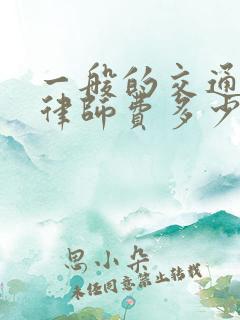 一般的交通
律师费多少
思小朵
未经同意禁止转载